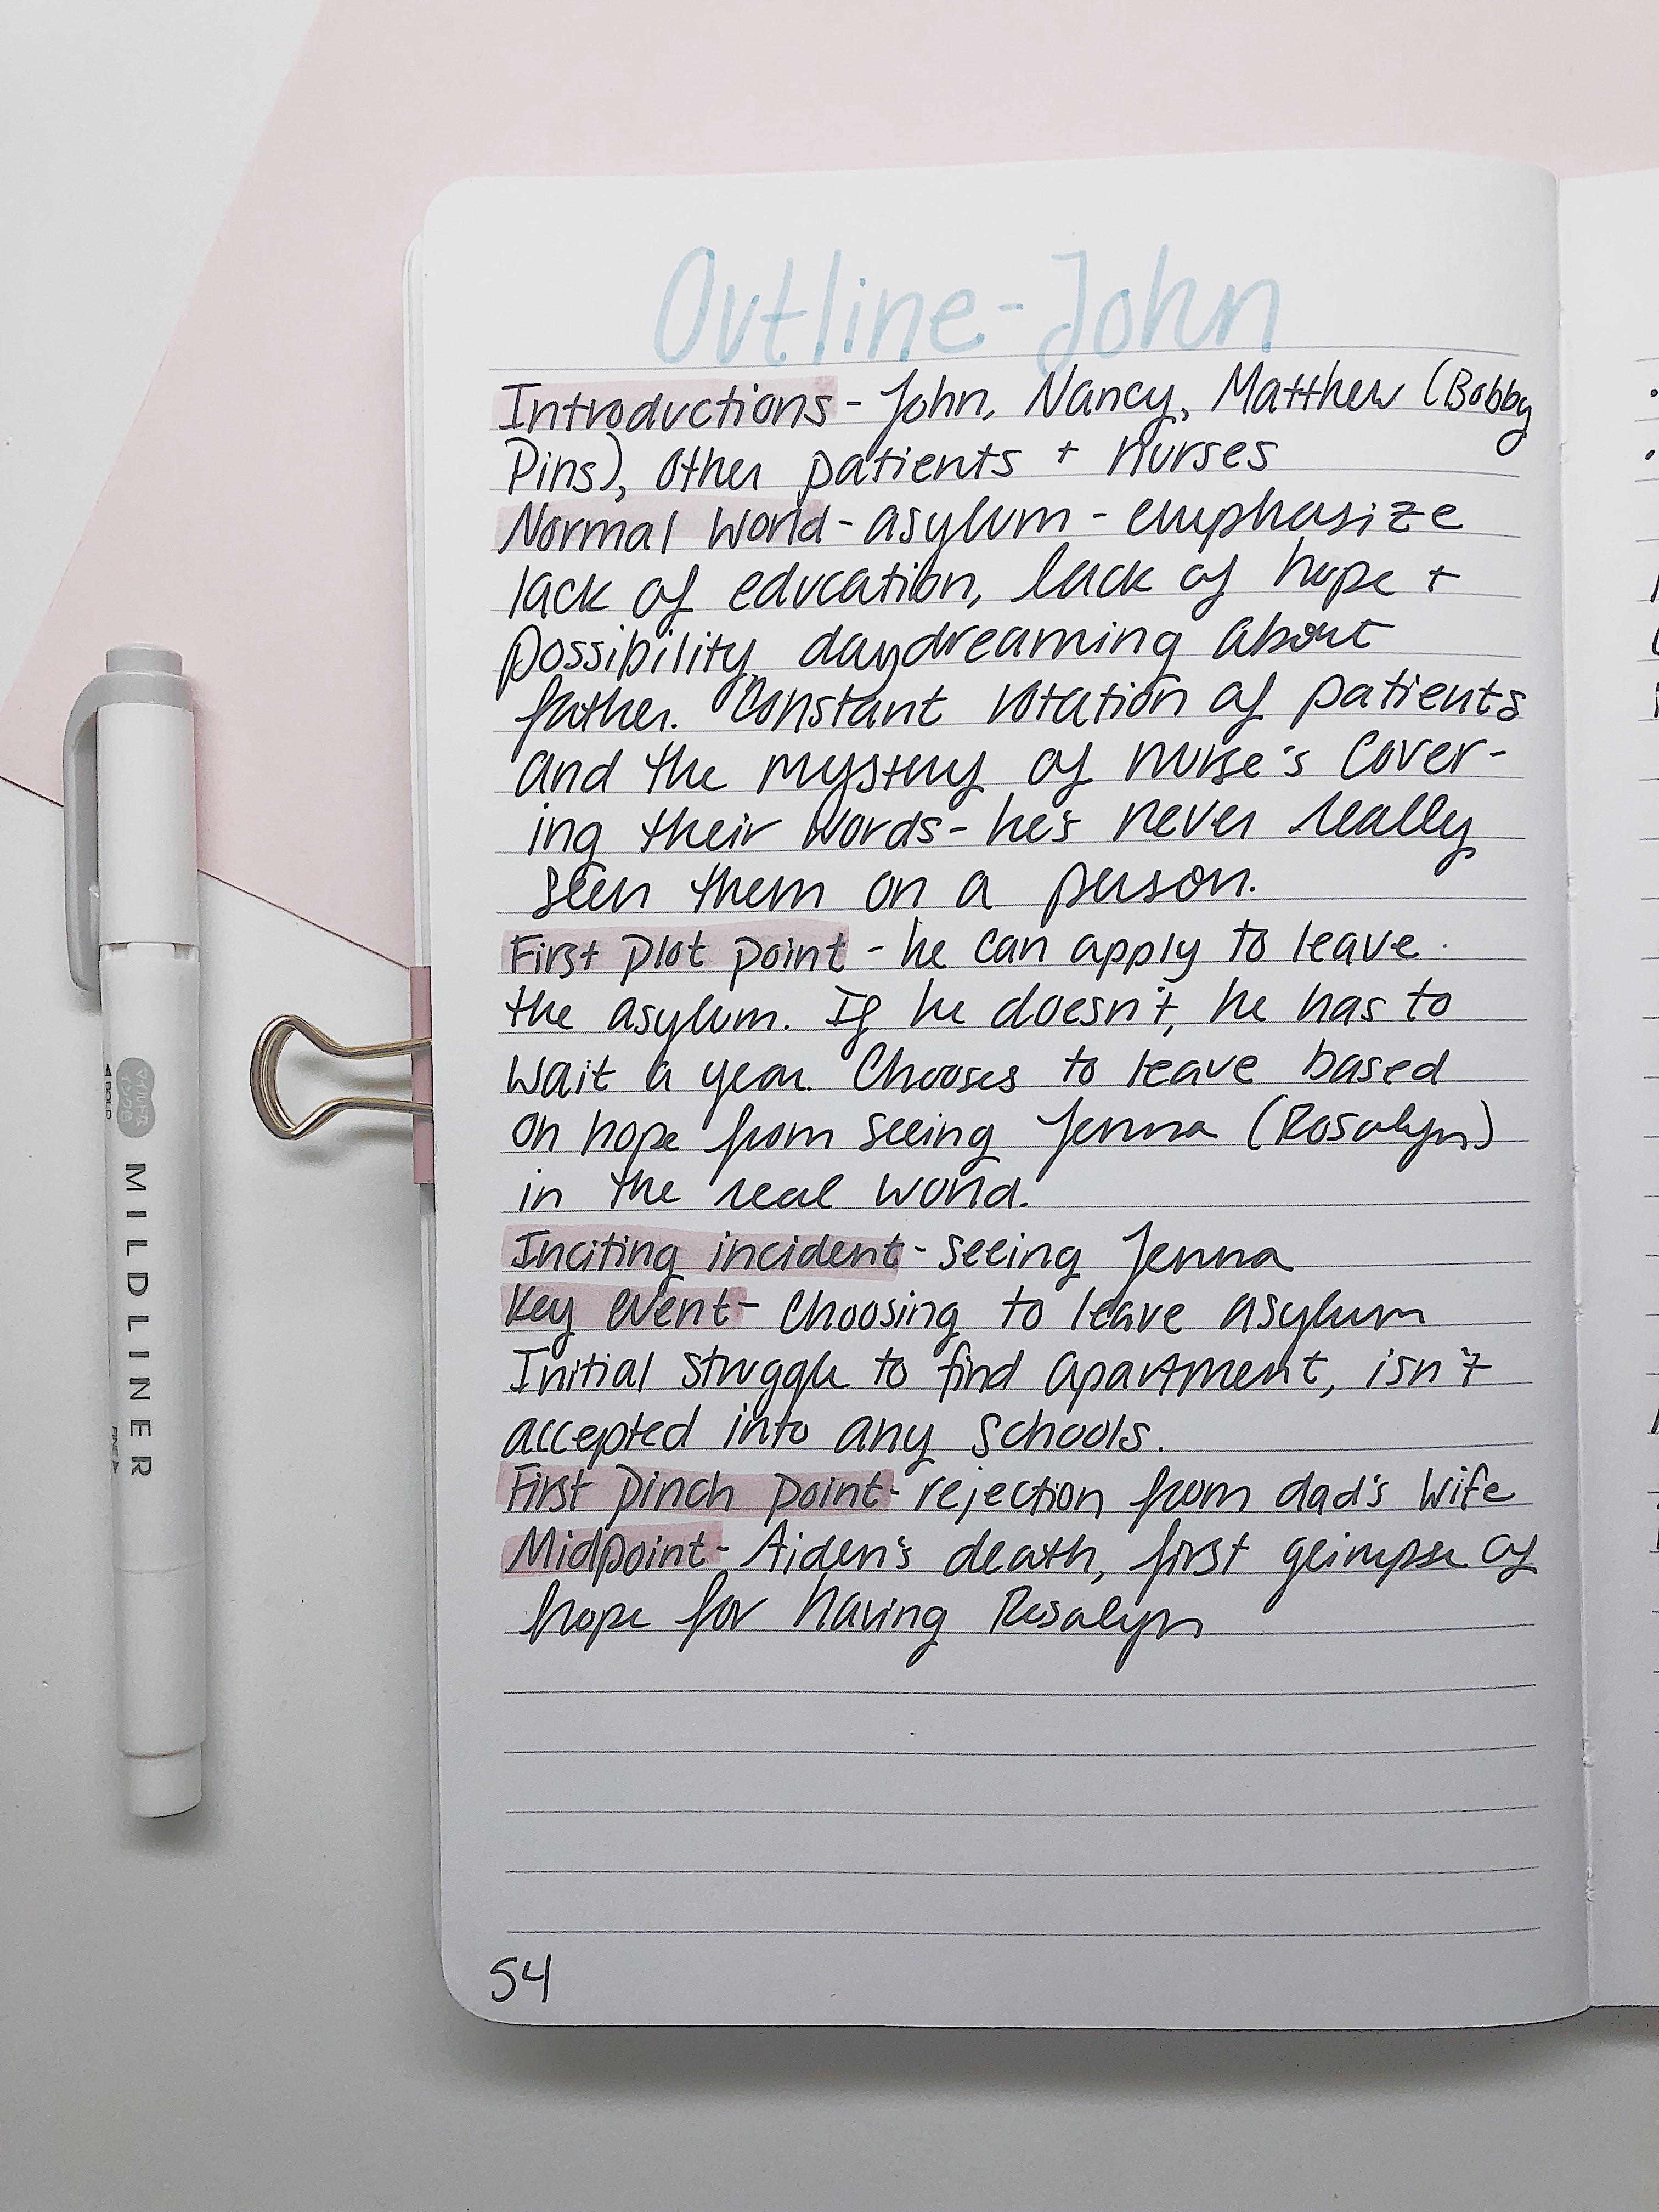 Outline-John
Introductions - John, Nancy, Matthew (Bobby
Pins), other patients + nurses
Normal World - asylum - emphasize
lack of education, lack of hope +
possibility, daydreaming about
father. Constant rotation of patients
and the mystery of nurse's cover-
ing their words - he's never really
seen them on a person.
First plot point - he can apply to leave
the asylum. If he doesn't, he has to
wait a year. Chooses to leave based
on hope from seeing Jenna (Rosalyn)
in the real world.
Inciting incident - seeing Jenna
Key event - Choosing to leave asylum
Initial struggle to find apartment, isn't
accepted into any schools.
First pinch point - rejection from dad's wife
Midpoint - Aiden's death, first glimpse of
hope for having Rosalyn
54
MILDLINER
BOLD
FINE